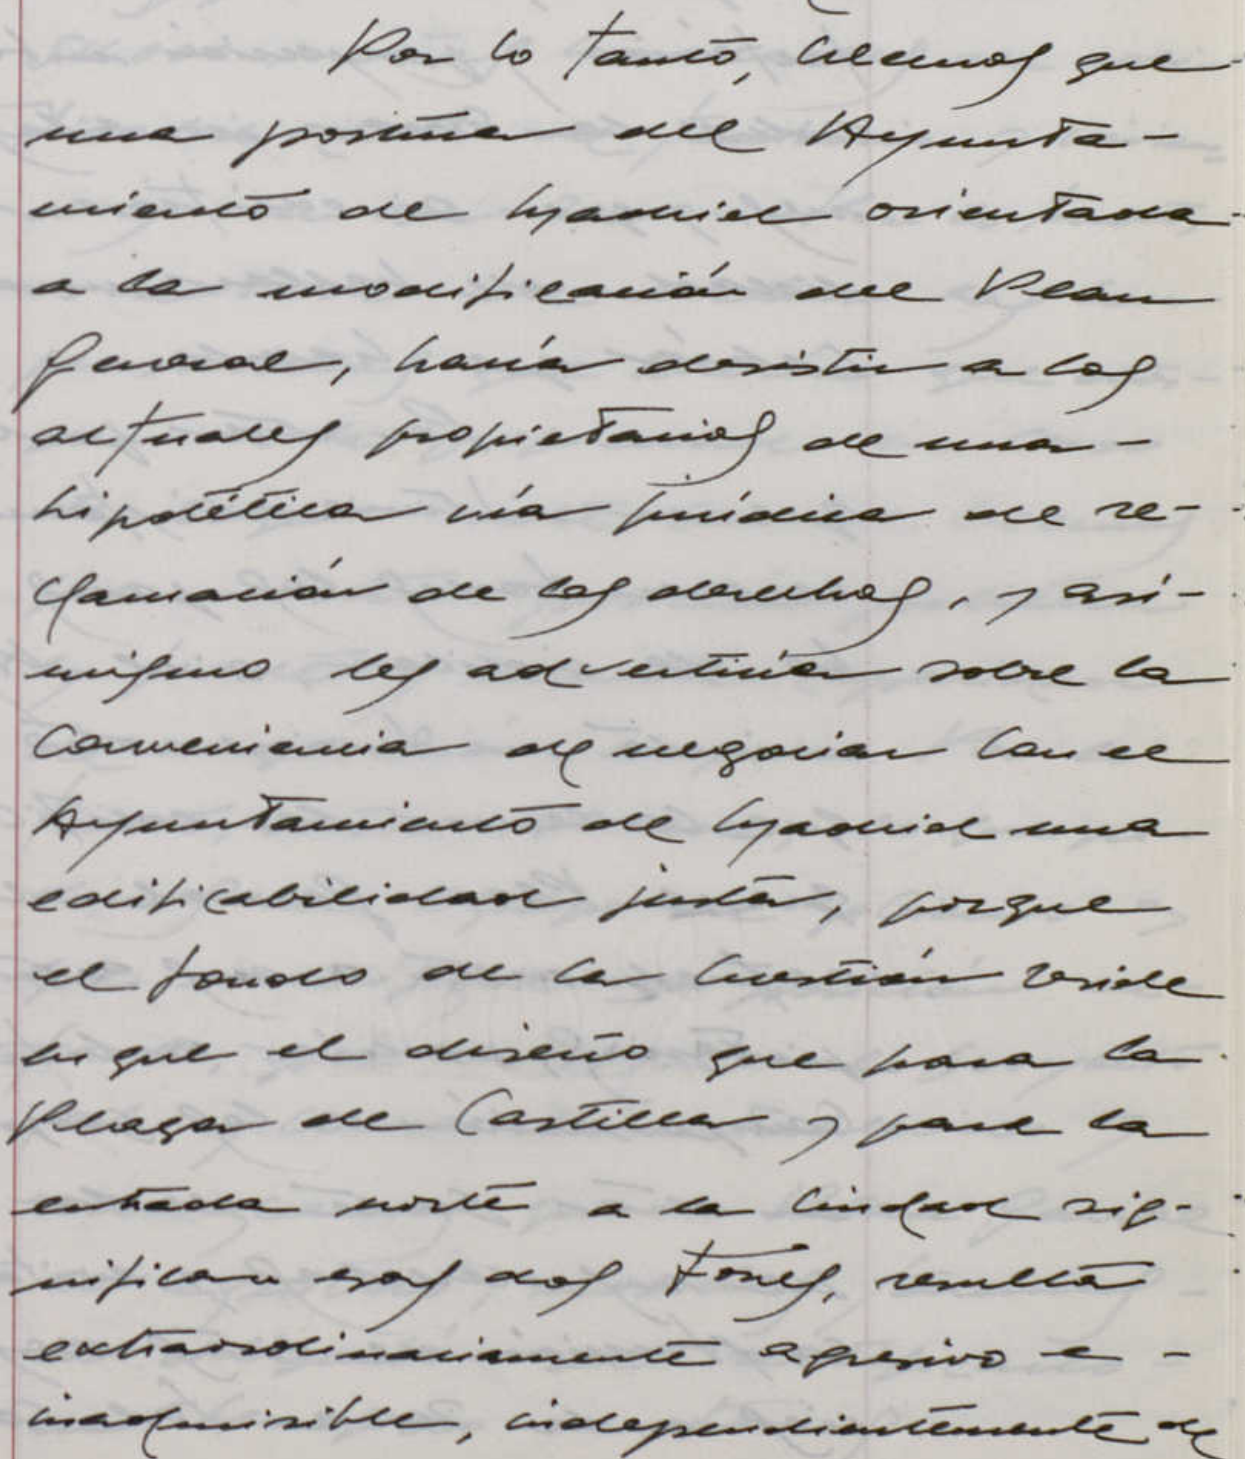 Por lo tanto, creemos que
una postura del Ayunta-
miento de Madrid orientada
a la modificación del Plan
General, haría desistir a los
actuales propietarios de una-
hipotética vía jurídica de re-
clamación de los derechos, y asi-
mismo les advertiría sobre la
conveniencia de negociar con el
Ayuntamiento de Madrid una
edificabilidad justa, porque
el fondo de la cuestión reside
en que el diseño que para la
Plaza de Castilla y para la
entrada norte a la ciudad sig-
nifican esas dos torres, resulta
extraordinariamente agresivo e -
inadmisible, independientemente de